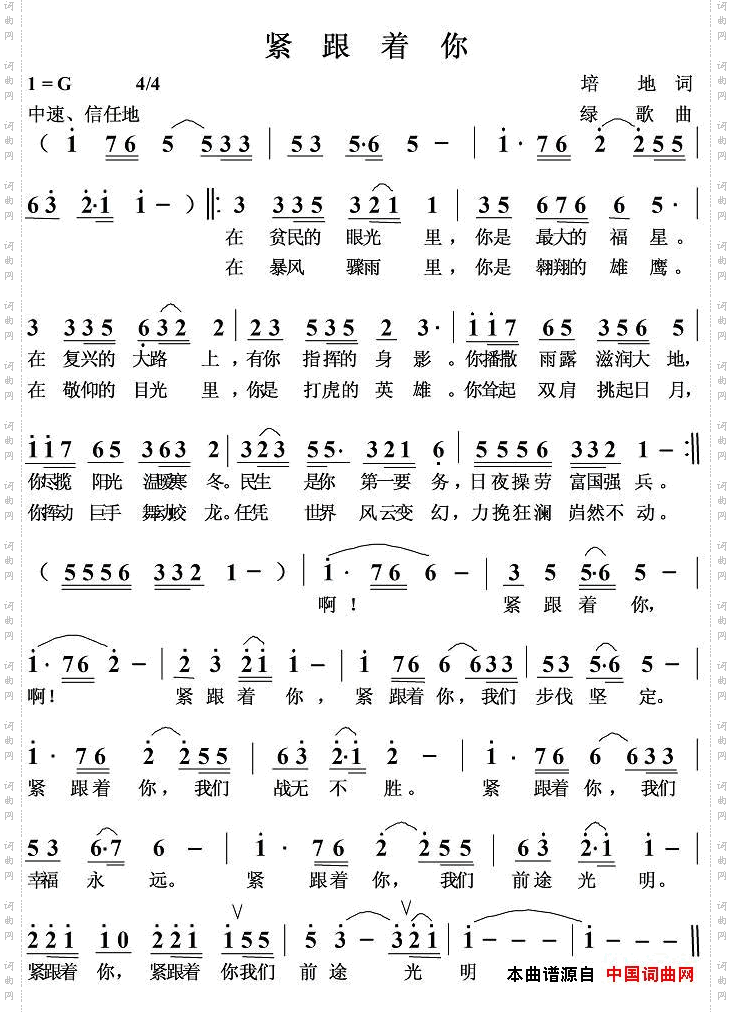 紧 跟 着 你
1 = G 4/4 培 地 词
中速、信任地 绿 歌 曲
( i 76 5 533 | 53 5·6 5 - | i· 76 2 255 |
63 2·i i - ) ‖: 3 335 321 1 | 35 676 6 5· |
在 贫民的 眼光 里，你是 最大的 福 星。
在 暴风 骤雨 里，你是 翱翔的 雄 鹰。
3 335 632 2 | 23 535 2 3· | ii7 65 356 5
在 复兴的 大路 上，有你 指挥的 身 影。你播撒 雨露 滋润大 地，
在 敬仰的 目光 里，你是 打虎的 英 雄。你耸起 双肩 挑起日 月，
ii7 65 363 2 | 323 55· 321 6 | 5556 332 1 - :‖
你尽揽 阳光 温暖寒 冬。民生 是你 第一要 务，日夜操劳 富国强 兵。
你挥动 巨手 舞动蛟 龙。任凭 世界 风云变 幻，力挽狂澜 岿然不 动。
( 5556 332 1 - ) | i· 76 6 - | 3 5 5·6 5 - |
啊！ 紧 跟 着 你，
i· 76 2 - | 2 3 2i i - | i 76 6 633 | 53 5·6 5 - |
啊！ 紧 跟 着 你， 紧 跟着 你，我们 步伐 坚 定。
i· 76 2 255 | 63 2·i 2 - | i· 76 6 633 |
紧 跟着 你，我们 战无 不 胜。 紧 跟着 你，我们
53 6·7 6 - | i· 76 2 255 | 63 2·i i - |
幸福 永 远。 紧 跟着 你，我们 前途 光 明。
22i i0 22i i55 | 5 3 - 32i | i - - - | i - - - ‖
紧跟着 你，紧跟着 你我们 前 途 光 明
本曲谱源自 中国词曲网
词曲网